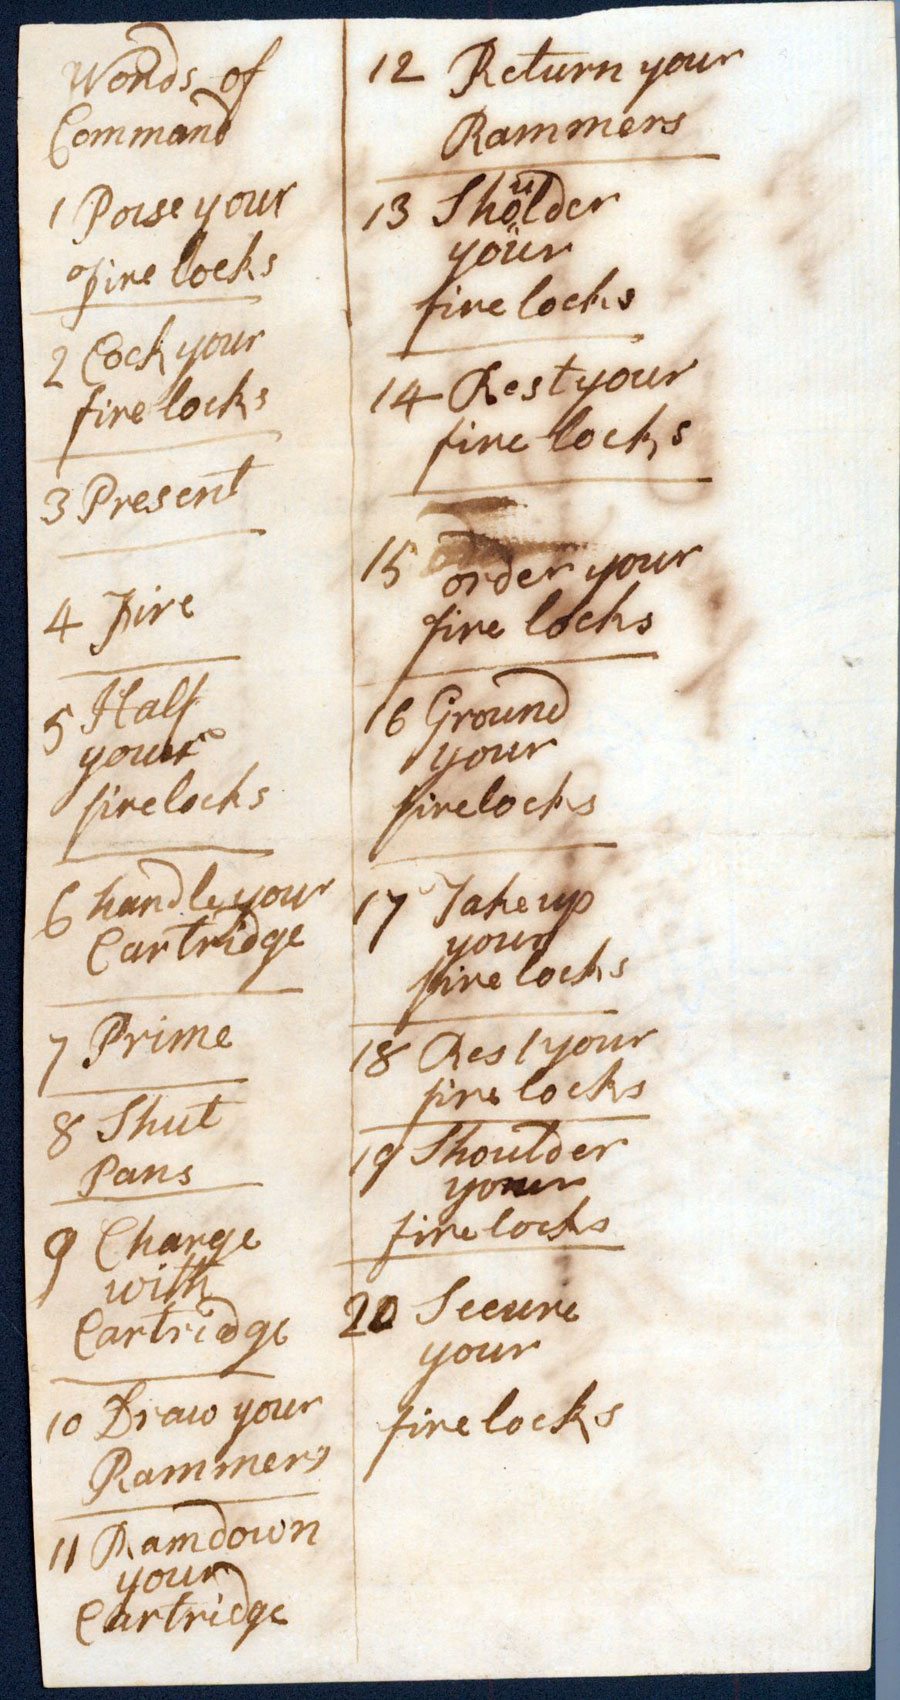 Words of
Command
1 Poise your
fire locks
2 Cock your
fire locks
3 Present
4 Fire
5 Half
your
firelocks
6 handle your
Cartridge
7 Prime
8 Shut
Pans
9 Charge
with
Cartridge
10 Draw your
Rammers
11 Ram down
your
Cartridge
12 Return your
Rammers
13 Shoulder
your
fire locks
14 Rest your
fire locks
15 order your
fire locks
16 Ground
your
firelocks
17 Take up
your
fire locks
18 Rest your
fire locks
19 Shoulder
your
fire locks
20 Secure
your
fire locks